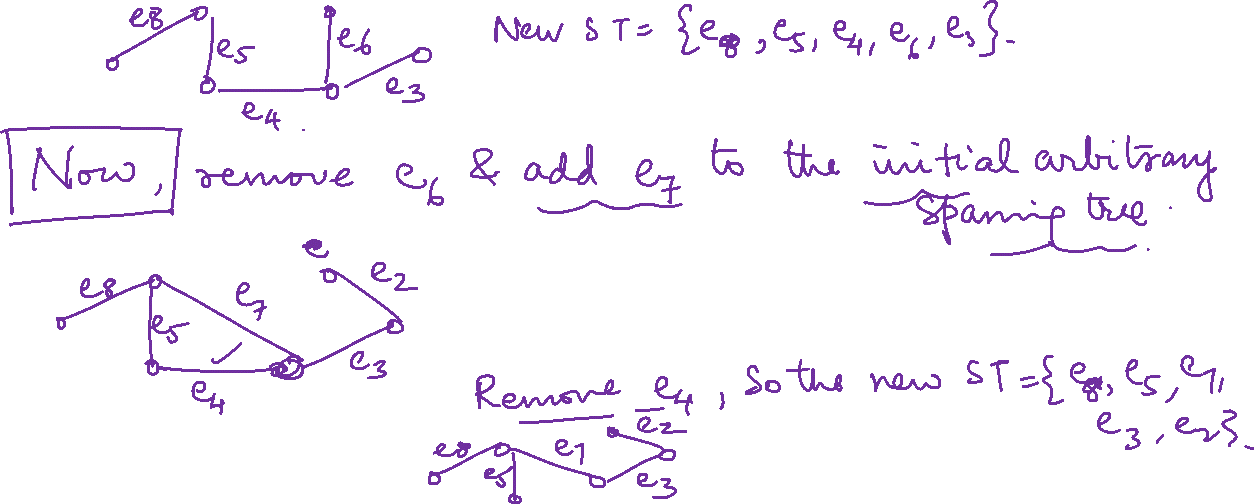 e8
e5
e4
e6
e3
New ST = {e8, e5, e4, e6, e3}.
Now, remove e6 & add e7 to the initial arbitrary
spanning tree.
e8
e5
e7
e4
e
e2
e3
Remove e4, so the new ST = {e8, e5, e7,
e3, e2}.
e8
e5
e7
e2
e3